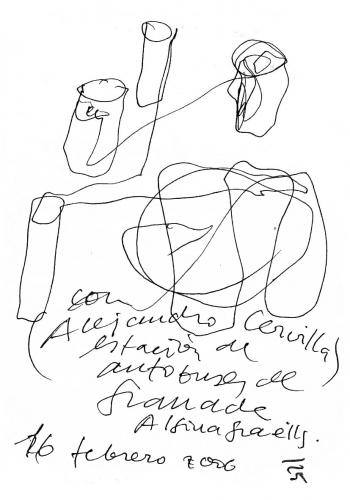 con
Alejandro Cervilla
estación de
autobuses de
Granada
Alsina Graells.
16 febrero 2006